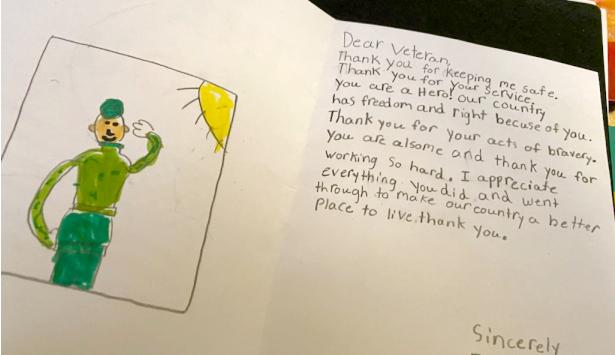 Dear Veteran,
Thank you for keeping me safe.
Thank you for your service.
You are a Hero! our country
has freedom and right becuse of you.
Thank you for your acts of bravery.
You are alsome and thank you for
working so hard. I appreciate
everything you did and went
through to make our country a better
place to live. thank you.
Sincerely